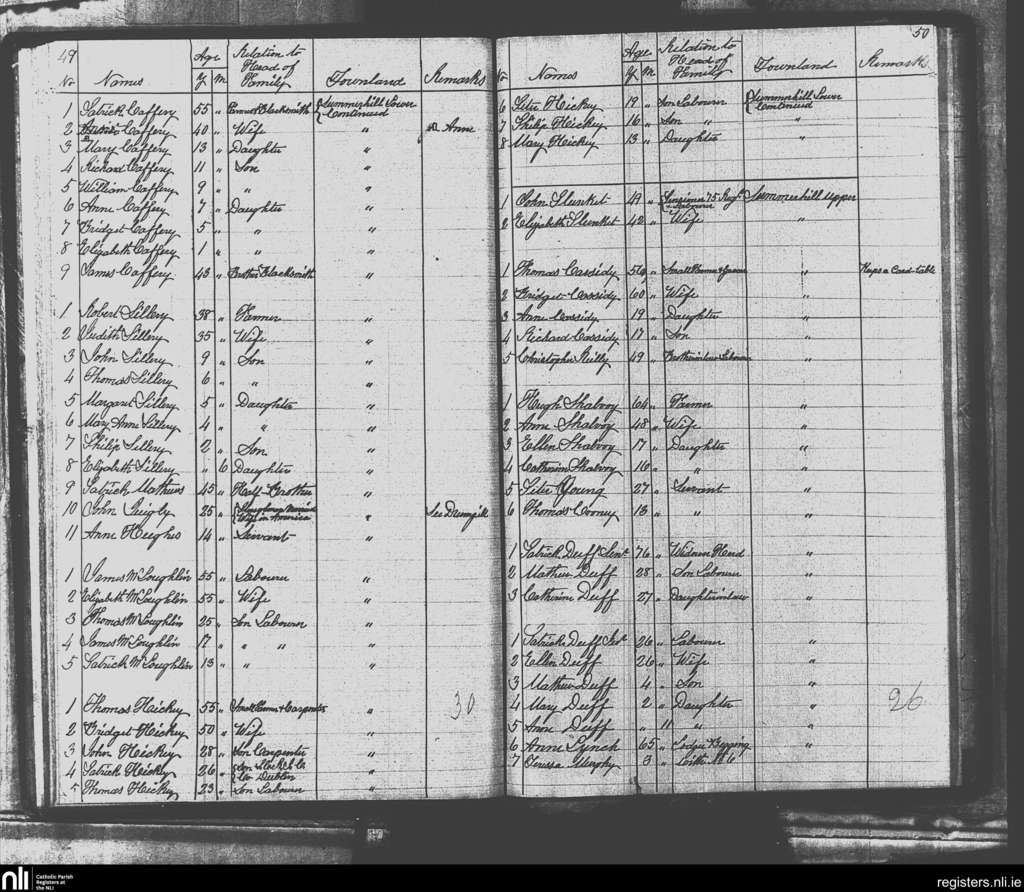 49
No Names Age Y. M Relation to Head of Family Townland Remarks
1 Patrick Caffery 55 „ Blacksmith {Summerhill Lower Continued
2 Caffery 40 „ Wife „ Anne
3 Mary Caffery 13 „ Daughter „
4 Richard Caffery 11 „ Son „
5 William Caffery 9 „ „ „
6 Anne Caffery 7 „ Daughter „
7 Bridget Caffery 5 „ „ „
8 Elizabeth Caffery 1 „ „ „
9 James Caffery 43 „ Brother Blacksmith „
1 Robert Lillery 38 „ Farmer „
2 Judith Lillery 35 „ Wife „
3 John Lillery 9 „ Son „
4 Thomas Lillery 6 „ „ „
5 Margaret Lillery 5 „ Daughter „
6 Mary Anne Lillery 4 „ „ „
7 Philip Lillery 2 „ Son „
8 Elizabeth Lillery „ 6 Daughter „
9 Patrick Mathews 45 „ Half-Brother „
10 John 25 „ Married Wife in America „ See
11 Anne Hughes 14 „ Servant „
1 James McLoughlin 55 „ Labourer „
2 Elizabeth McLoughlin 55 „ Wife „
3 Thomas McLoughlin 25 „ Son Labourer „
4 James McLoughlin 17 „ „ „ „
5 Patrick McLoughlin 13 „ „ „
1 Thomas Hickey 55 „ Small Farmer & Carpenter „
2 Bridget Hickey 50 „ Wife „
3 John Hickey 28 „ Son Carpenter „
4 Patrick Hickey 26 „ {Son Co Dublin „
5 Thomas Hickey 23 „ Son Labourer „
30
50
No Names Age Y. M Relation to Head of Family Townland Remarks
6 Peter Hickey 19 „ Son Labourer {Summerhill Lower Continued
7 Philip Hickey 16 „ Son „ „
8 Mary Hickey 13 „ Daughter „
1 John Plunket 49 „ Pensioner 75 Regt & Labourer Summerhill Upper
2 Elizabeth Plunket 42 „ Wife „
1 Thomas Cassidy 56 „ Small Farmer & „ Keeps a Card-table
2 Bridget Cassidy 60 „ Wife „
3 Anne Cassidy 19 „ Daughter „
4 Richard Cassidy 17 „ Son „
5 Christopher Reilly 49 „ Brother in law Labourer „
1 Hugh Shalvoy 64 „ Farmer „
2 Anne Shalvoy 48 „ Wife „
3 Ellen Shalvoy 17 „ Daughter „
4 Catherine Shalvoy 16 „ „ „
5 Peter Young 27 „ Servant „
6 Thomas Cooney 13 „ „ „
1 Patrick Duff Senr 76 „ Widower Herd „
2 Mathew Duff 28 „ Son Labourer „
3 Catherine Duff 27 „ Daughter in law „
1 Patrick Duff Jr 26 „ Labourer „
2 Ellen Duff 26 „ Wife „
3 Mathew Duff 4 „ Son „
4 Mary Duff 2 „ Daughter „
5 Anne Duff „ 11 „ „
6 Anne Lynch 65 „ Lodger Begging „
7 Teresa Murphy 3 „ „
26
nli
Catholic Parish Registers at the NLI
registers.nli.ie